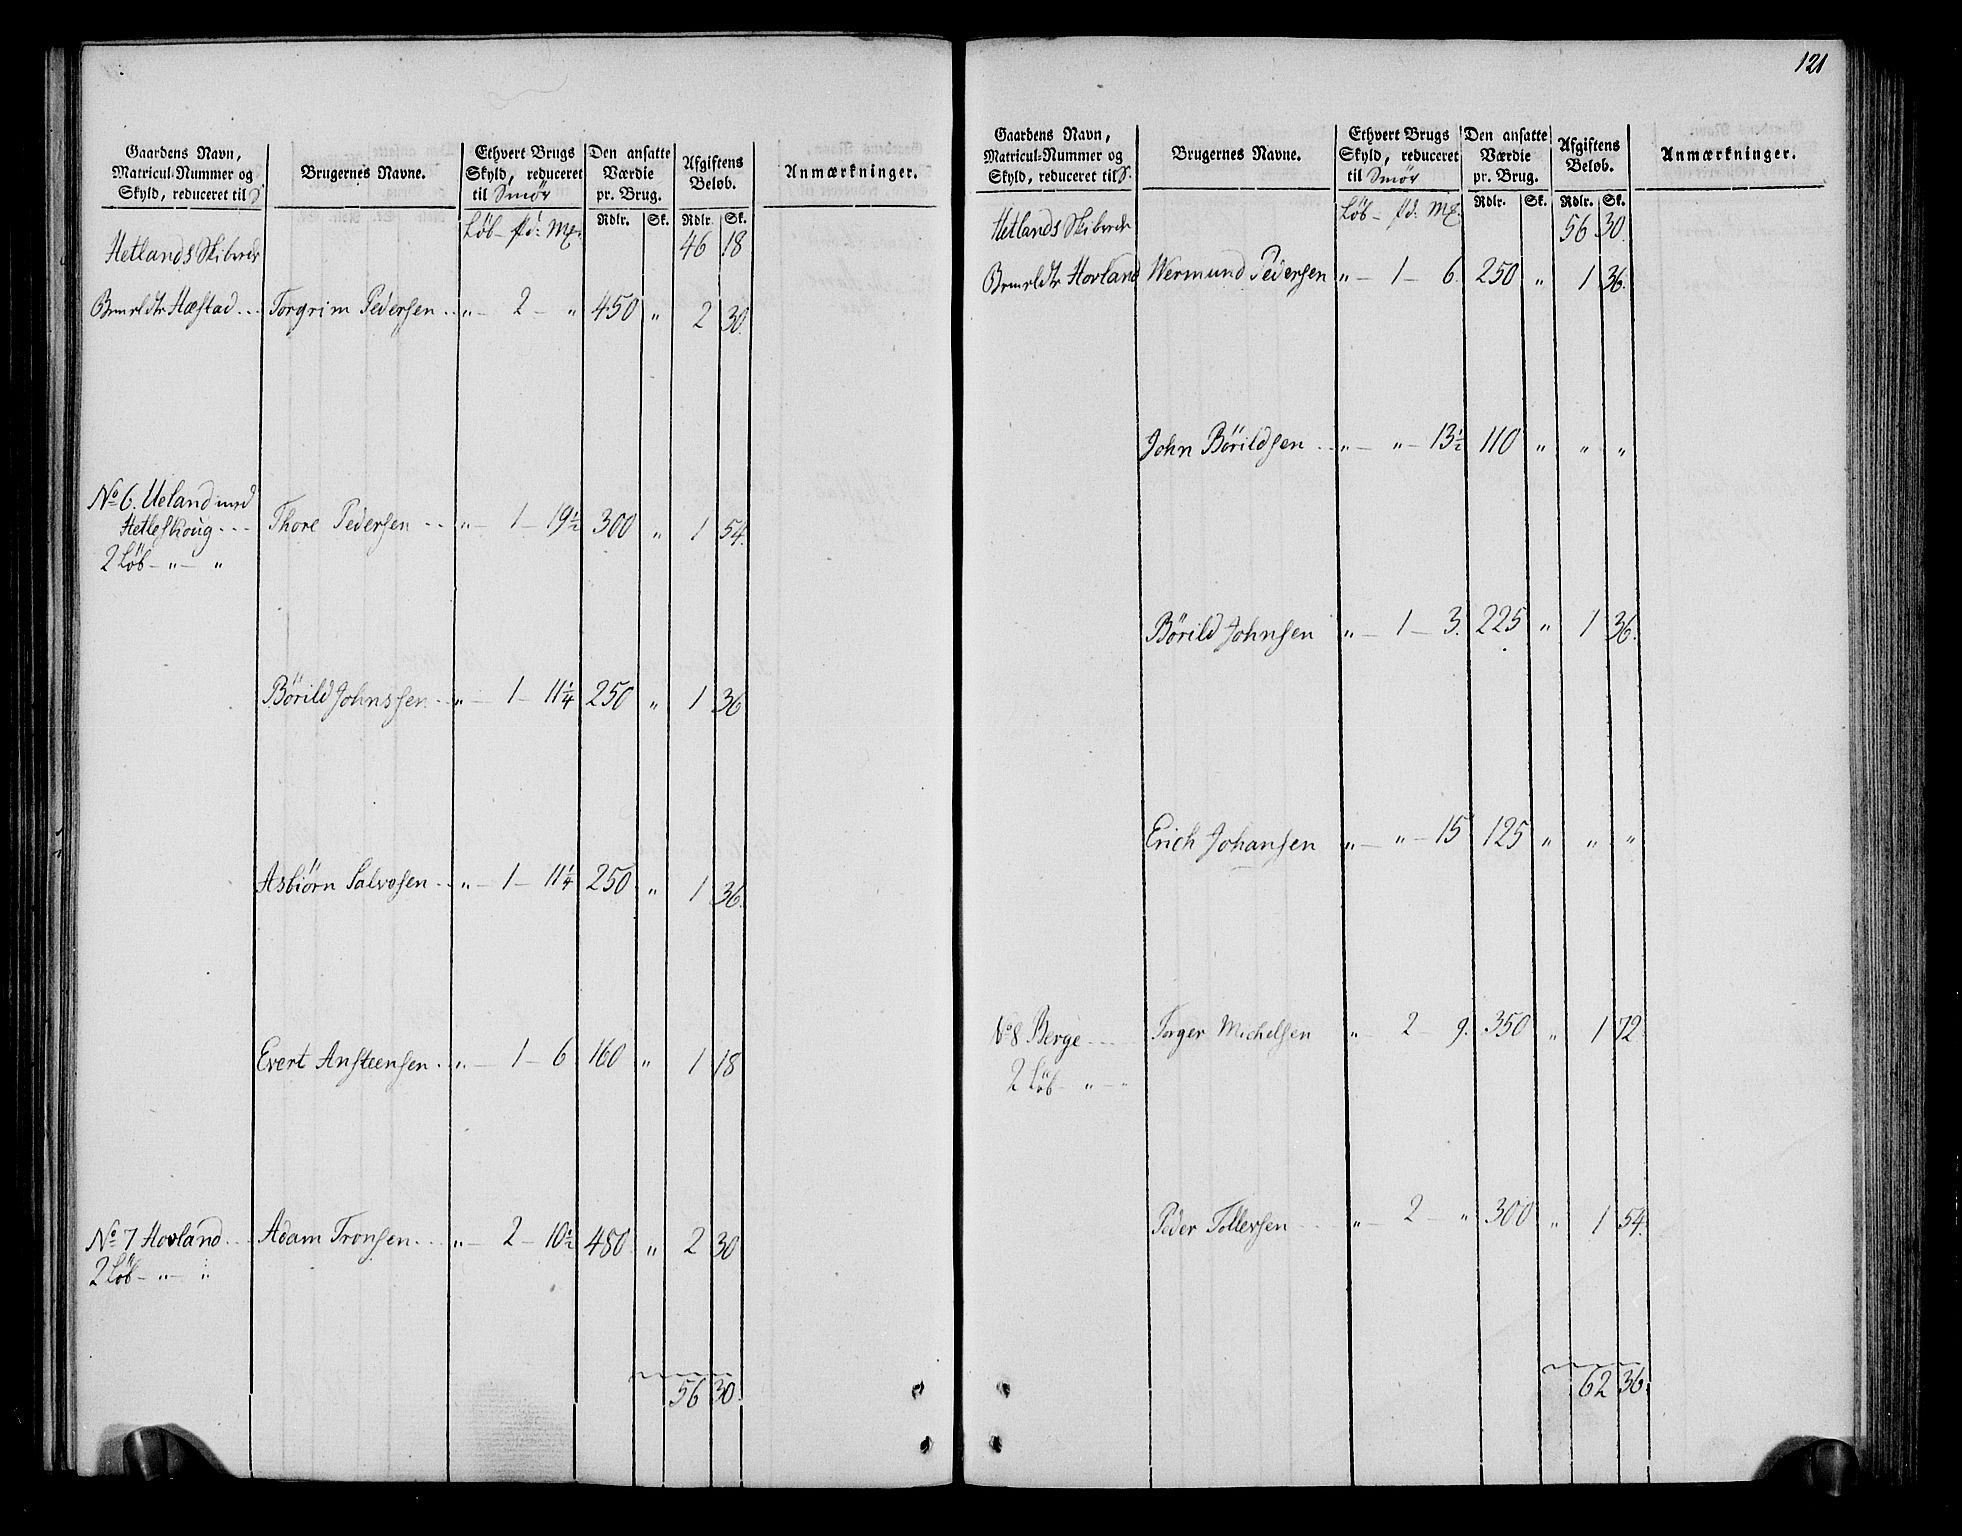 Gaardens Navn, Matricul-Nummer og Skyld, reduceret til S
Brugernes Navne.
Ethvert Brugs Skyld, reduceret til Smör
Den ansatte Værdie pr. Brug.
Afgiftens Beløb.
Anmærkninger.
Rdlr. Sk. Rdlr. Sk.
Hetlands Skibrede Löb – pd: Mg. 46 18
Hæstad... Torgrim Pedersen.. " – 2 – " 450 " 2 30.
No 6. Ueland med
Hetleskoug... Thore Pedersen... " – 1 – 19½ 300 " 1 54.
2 Löb – " – "
Börild Johnssen.. " – 1 – 11¼ 250 " 1 36
Asbiörn Salvesen.. " – 1 – 11¼ 250 " 1 36.
Evert Ansteensen.. " – 1 – 6 160 " 1 18
No 7 Hovland... Adam Tronsen... " – 2 – 10½ 480 " 2 30
2 Löb – " – "
56 30.
121
Gaardens Navn, Matricul-Nummer og Skyld, reduceret til S.
Brugernes Navne.
Ethvert Brugs Skyld, reduceret til Smör
Den ansatte Værdie pr. Brug.
Afgiftens Beløb.
Anmærkninger.
Rdlr. Sk. Rdlr. Sk.
Hetlands Skibrede Löb – pd: Mg. 56 30.
Hovland Wermund Pedersen " – 1 – 6. 250 " 1 36.
John Börildsen.. " – " – 13½ 110 " " "
Börild Johnsen " – 1 – 3. 225 " 1 36.
Erich Johansen " – " – 15 125 " " "
No 8 Berge... Torger Michelsen " – 2 – 9. 350 " 1 72.
2 Löb – " – "
Peder Tollevsen " – 2 – " 300 " 1 54.
62 36.